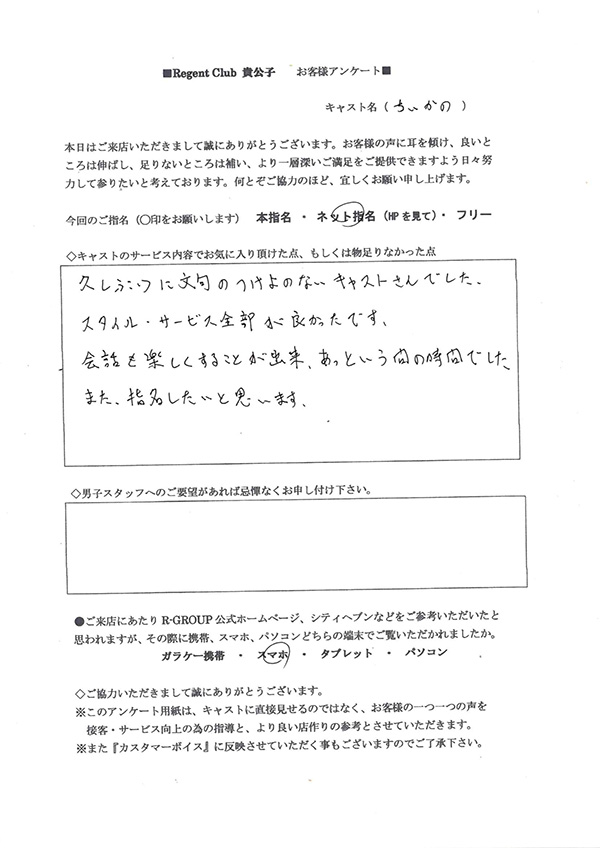 ■Regent Club 貴公子　お客様アンケート■
キャスト名（ちいかの）
本日はご来店いただきまして誠にありがとうございます。お客様の声に耳を傾け、良いと
ころは伸ばし、足りないところは補い、より一層深いご満足をご提供できますよう日々努
力して参りたいと考えております。何とぞご協力のほど、宜しくお願い申し上げます。
今回のご指名（〇印をお願いします）　本指名 ・ ネット指名（HPを見て）・ フリー
◇キャストのサービス内容でお気に入り頂けた点、もしくは物足りなかった点
久しぶりに文句のつけよのないキャストさんでした、
スタイル・サービス全部が良かったです、
会話も楽しくすることが出来、あっという間の時間でした
また、指名したいと思います、
◇男子スタッフへのご要望があれば忌憚なくお申し付け下さい。
●ご来店にあたり R-GROUP 公式ホームページ、シティヘブンなどをご参考いただいたと
思われますが、その際に携帯、スマホ、パソコンどちらの端末でご覧いただかれましたか。
ガラケー携帯 ・ スマホ ・ タブレット ・ パソコン
◇ご協力いただきまして誠にありがとうございます。
※このアンケート用紙は、キャストに直接見せるのではなく、お客様の一つ一つの声を
接客・サービス向上の為の指導と、より良い店作りの参考とさせていただきます。
※また『カスタマーボイス』に反映させていただく事もございますのでご了承下さい。